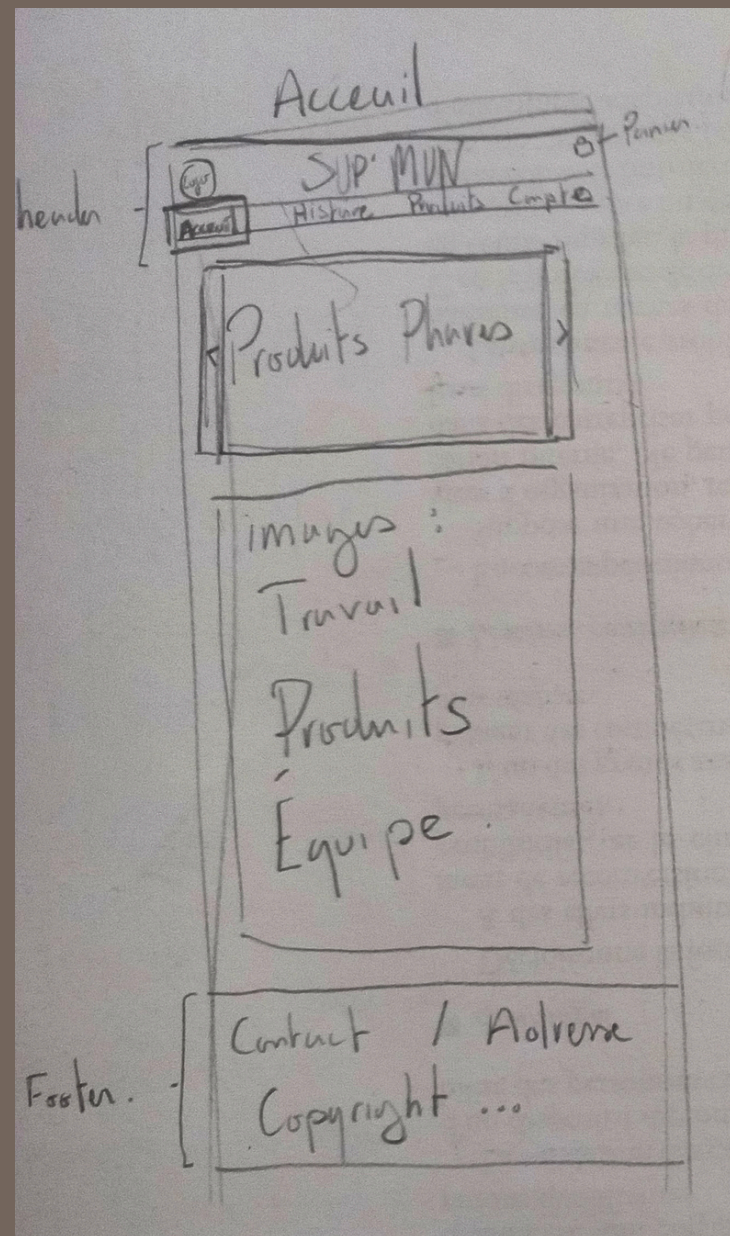 Acceuil
Panier
Logo
SUP'MVN
header
Acceuil Histoire Produits Compte
< Produits Phares >
images :
Travail
Produits
Équipe.
Contact / Adresse
Footer.
Copyright ...